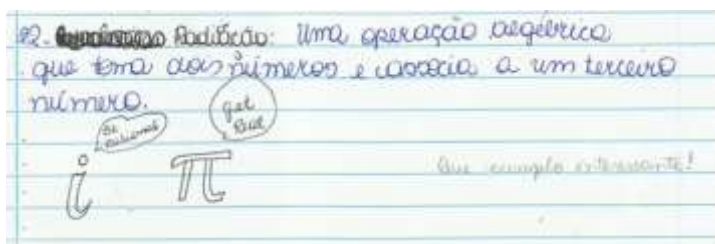 02. Radiciação: Uma operação algébrica
que toma dois números e associa a um terceiro
número.
Be rational
get Real
i π
Que exemplo interessante!